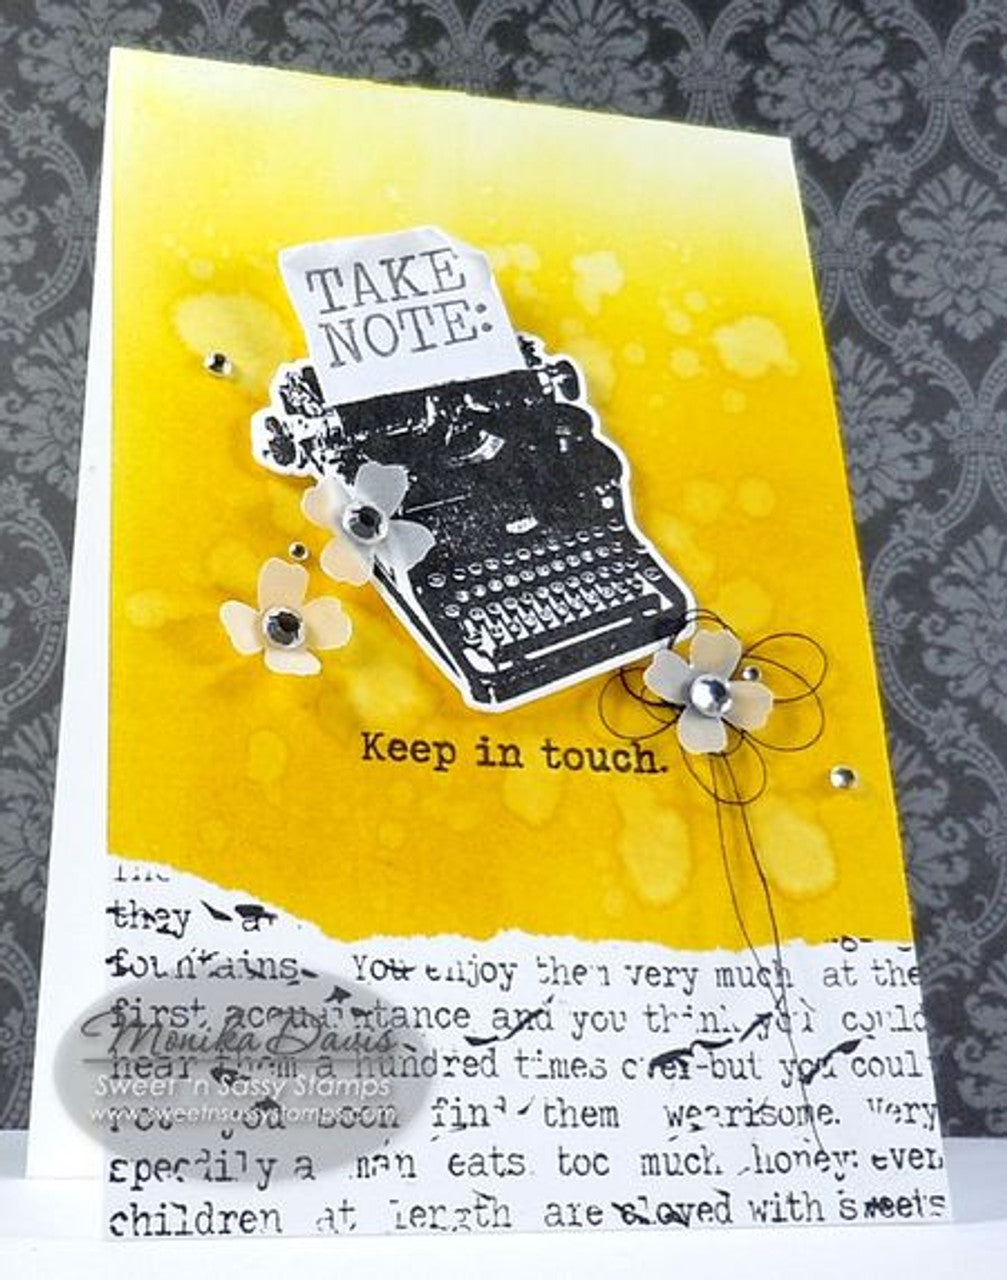 TAKE
NOTE:
Keep in touch.
they a
fountains. You enjoy them very much at the
first acquaintance and you think you could
hear them a hundred times over-but you could
you soon find them wearisome. Very
speedily a man eats too much honey: even
children at length are cloyed with sweets
Monika Davis
Sweet 'n Sassy Stamps
www.sweetnsassystamps.com